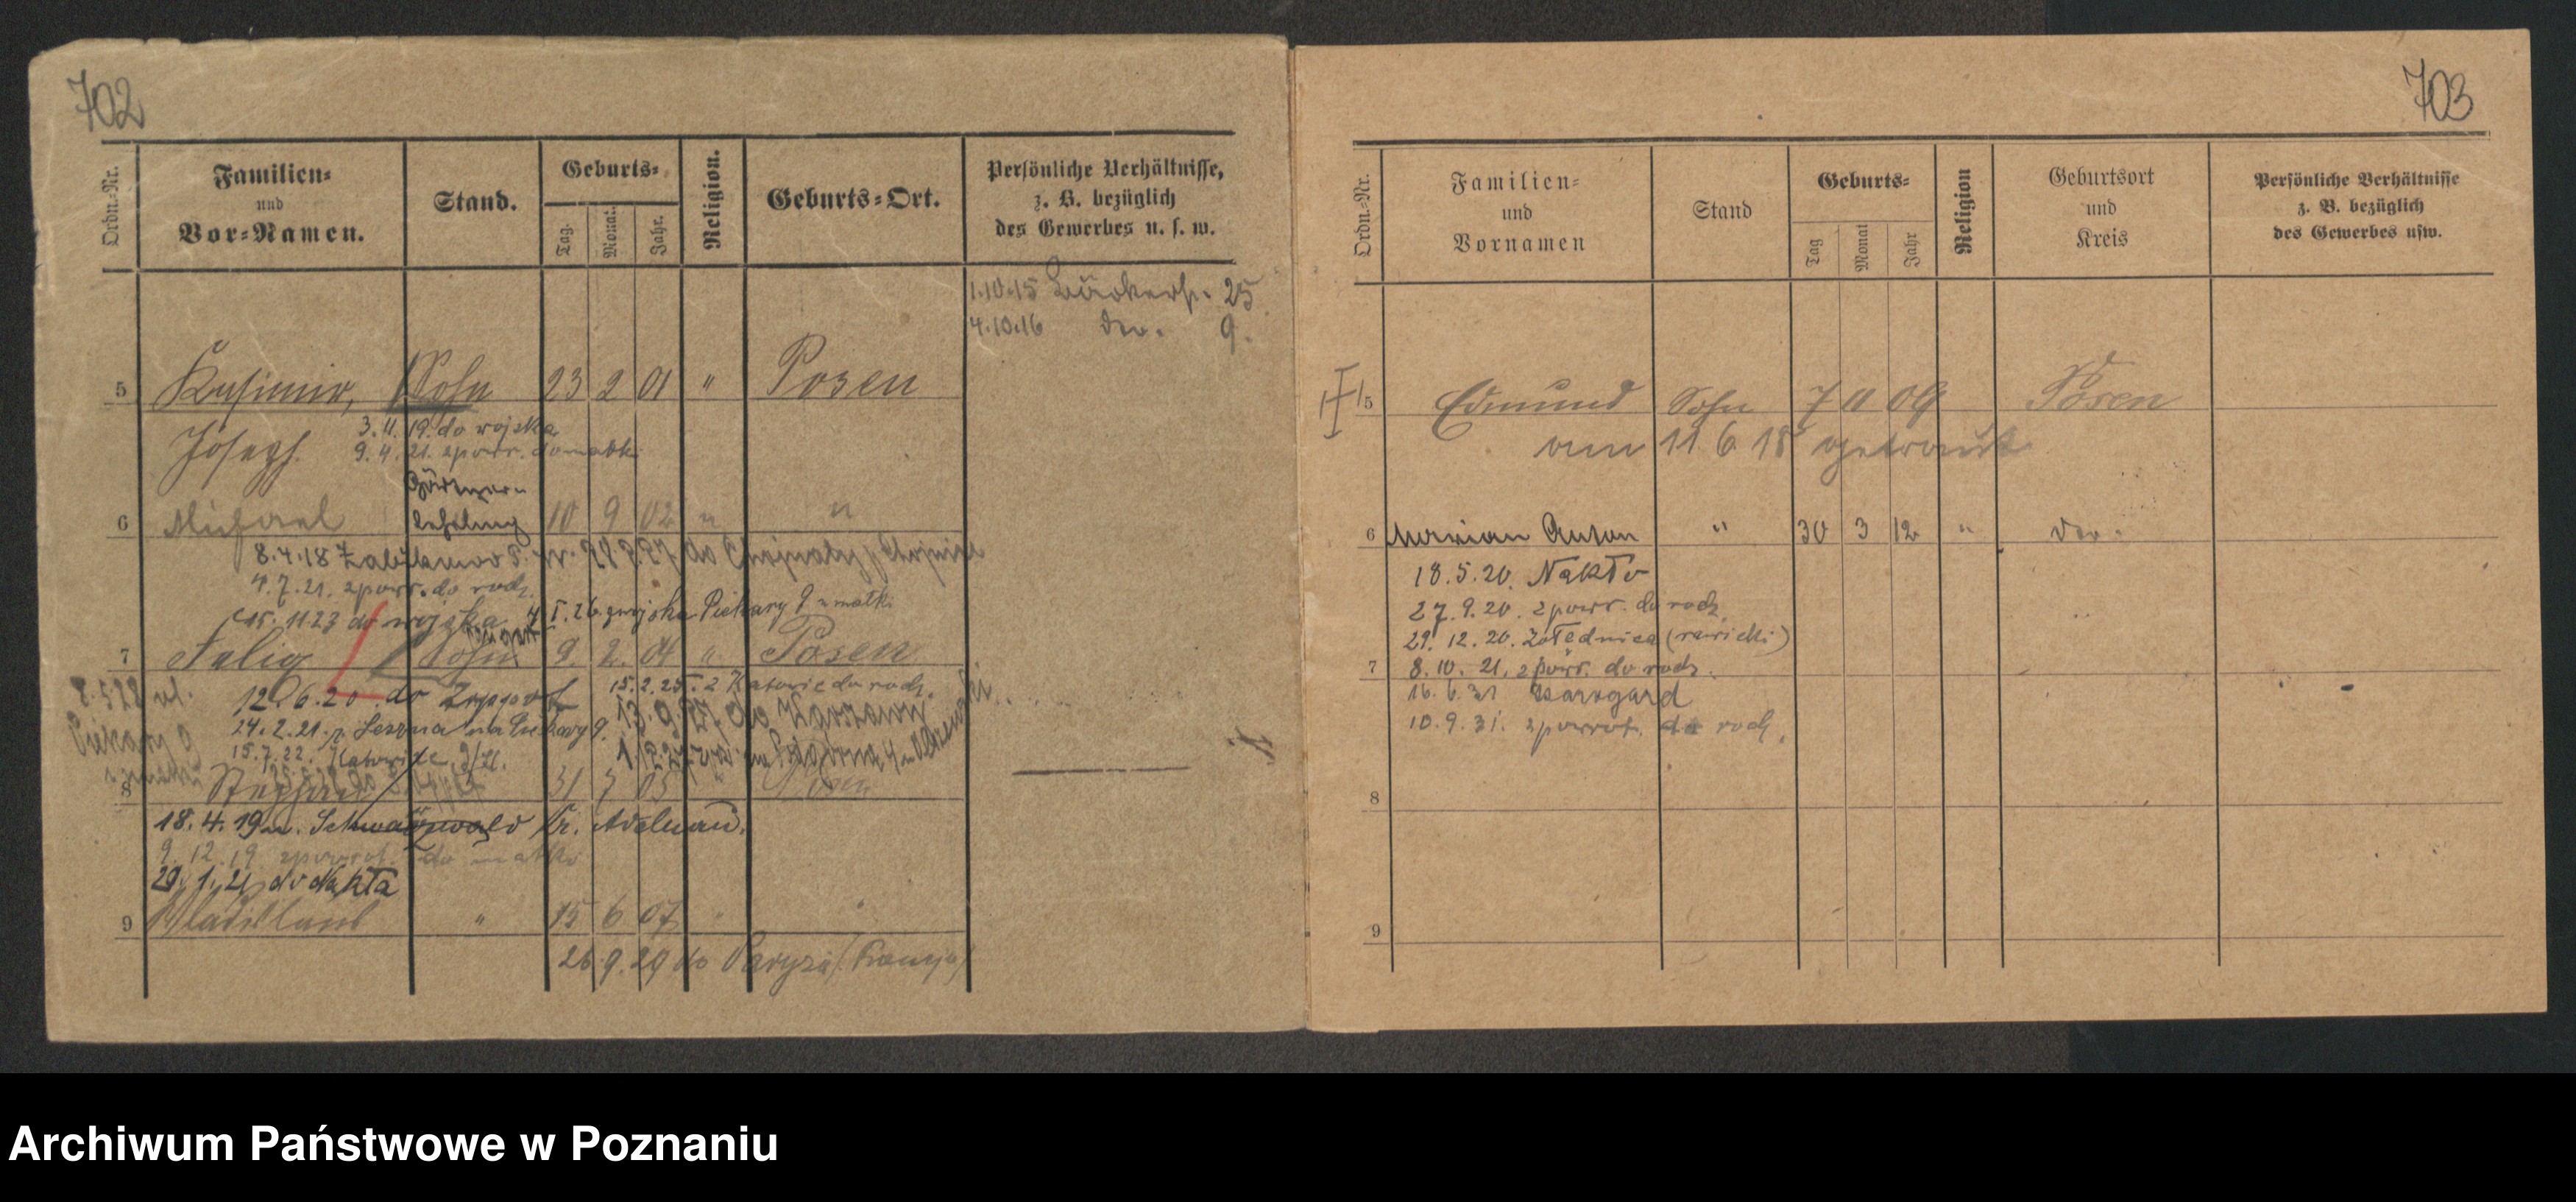 702
Ordn.-Nr.
Familien-
und
Vor-Namen.
Stand.
Geburts-
Tag.
Monat.
Jahr.
Religion.
Geburts-Ort.
Persönliche Verhältnisse,
z. B. bezüglich
des Gewerbes u. s. w.
1.10.15 Bäckerstr. 25
4.10.16 do. 9.
5 Kasimir, Sohn 23 2 01 " Posen
3.11.19. do wojska
Joseph. 9.4.21. zpowr. do matki
Gärtner-
6 Michael Lehrling 10 9 02 " "
8.4.18 Żabikowo
4.7.21. zpowr. do rodz.
15.11.23 do wojska 4 I. 26. z wojska Piekary 9 u matki
7 Felix Sohn 9. 2. 04 " Posen
8.5.28 ul.
Piekary 9
12.6.20. do
15.2.25. z Katowic do rodz.
24.2.21. z Leszna na Piekary 9.
13.9.27 do Warszawy
15.7.22. Katowice
8 Stephan 31 7 05 " Posen
18.4.19 n. Schwarzwald Kr. Adelnau.
9.12.19 zpowrot. do matki
29.1.21 do Nakła
9 Wladislaus " 15 6 07 " "
26.9.29 do Paryża (Francja)
703
Ordn.-Nr.
Familien-
und
Vornamen
Stand
Geburts-
Tag
Monat
Jahr
Religion
Geburtsort
und
Kreis
Persönliche Verhältnisse
z. B. bezüglich
des Gewerbes usw.
5 Edmund Sohn 7 11 09 Posen
am 11 6 18 getraut
6 Marian Anton " 30 3 12 " do.
18.5.20. Nakło
27.9.20. zpowr. do rodz.
29.12.20. Żołędnica (rawicki)
7 8.10.21. zpowr. do rodz.
16.6.31 Stargard
10.9.31. zpowrot. do rodz.
8
9
Archiwum Państwowe w Poznaniu